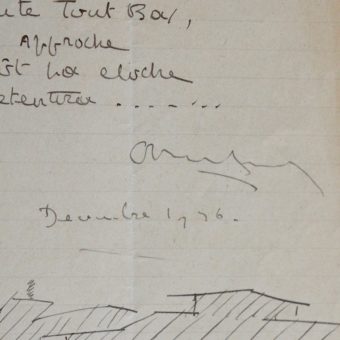 ute Tout Bas,
Approche
ôt la cloche
etentira
Decembre 1936.